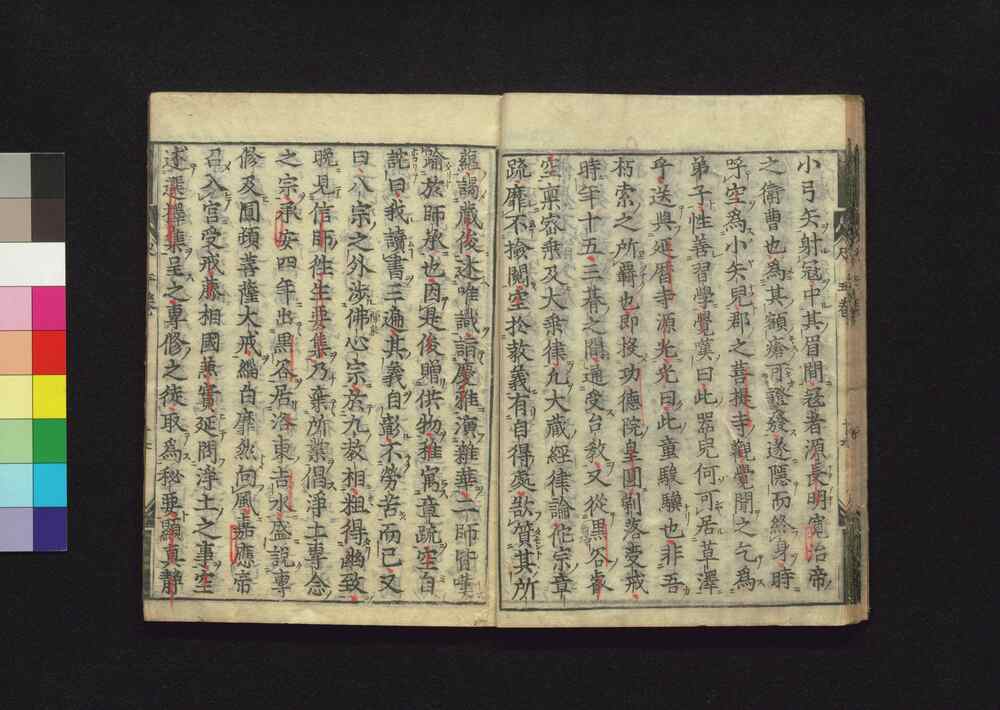 小弓矢射冠中其眉間冠者源長明寛治帝
之衛曹也為其額瘡可證發遂隠而終身時
呼空為小矢兒郡之菩提寺觀覺聞之乞為
弟子性善習學覺嘆曰此器兒何可居草澤
乎送與延暦寺源光光曰此童駿驥也非吾
朽索之所羈也即投功德院皇圓剃落受戒
時年十五三暮之間通受台教又從黒谷叡
空稟密乗及大乗律九大藏經律論他宗章
疏靡不撿閲空於教義有自得處欲質其所
蘊謁藏俊述唯識詣慶雅演雜華二師皆嘆
踰於師承也因是俊贈供物雅寓章疏空自
詫曰我讀書三遍其義自彰不勞苦而已又
曰八宗之外渉佛心宗於九教相粗得幽致
晩見信師往生要集乃棄所業倡淨土專念
之宗承安四年出黒谷居洛東吉水盛説專
修及圓頓菩薩大戒緇白靡然向風嘉應帝
召入宮受戒藤相國兼實延問浄土之事空
述選擇集呈之專修之徒取為秘要顯真靜